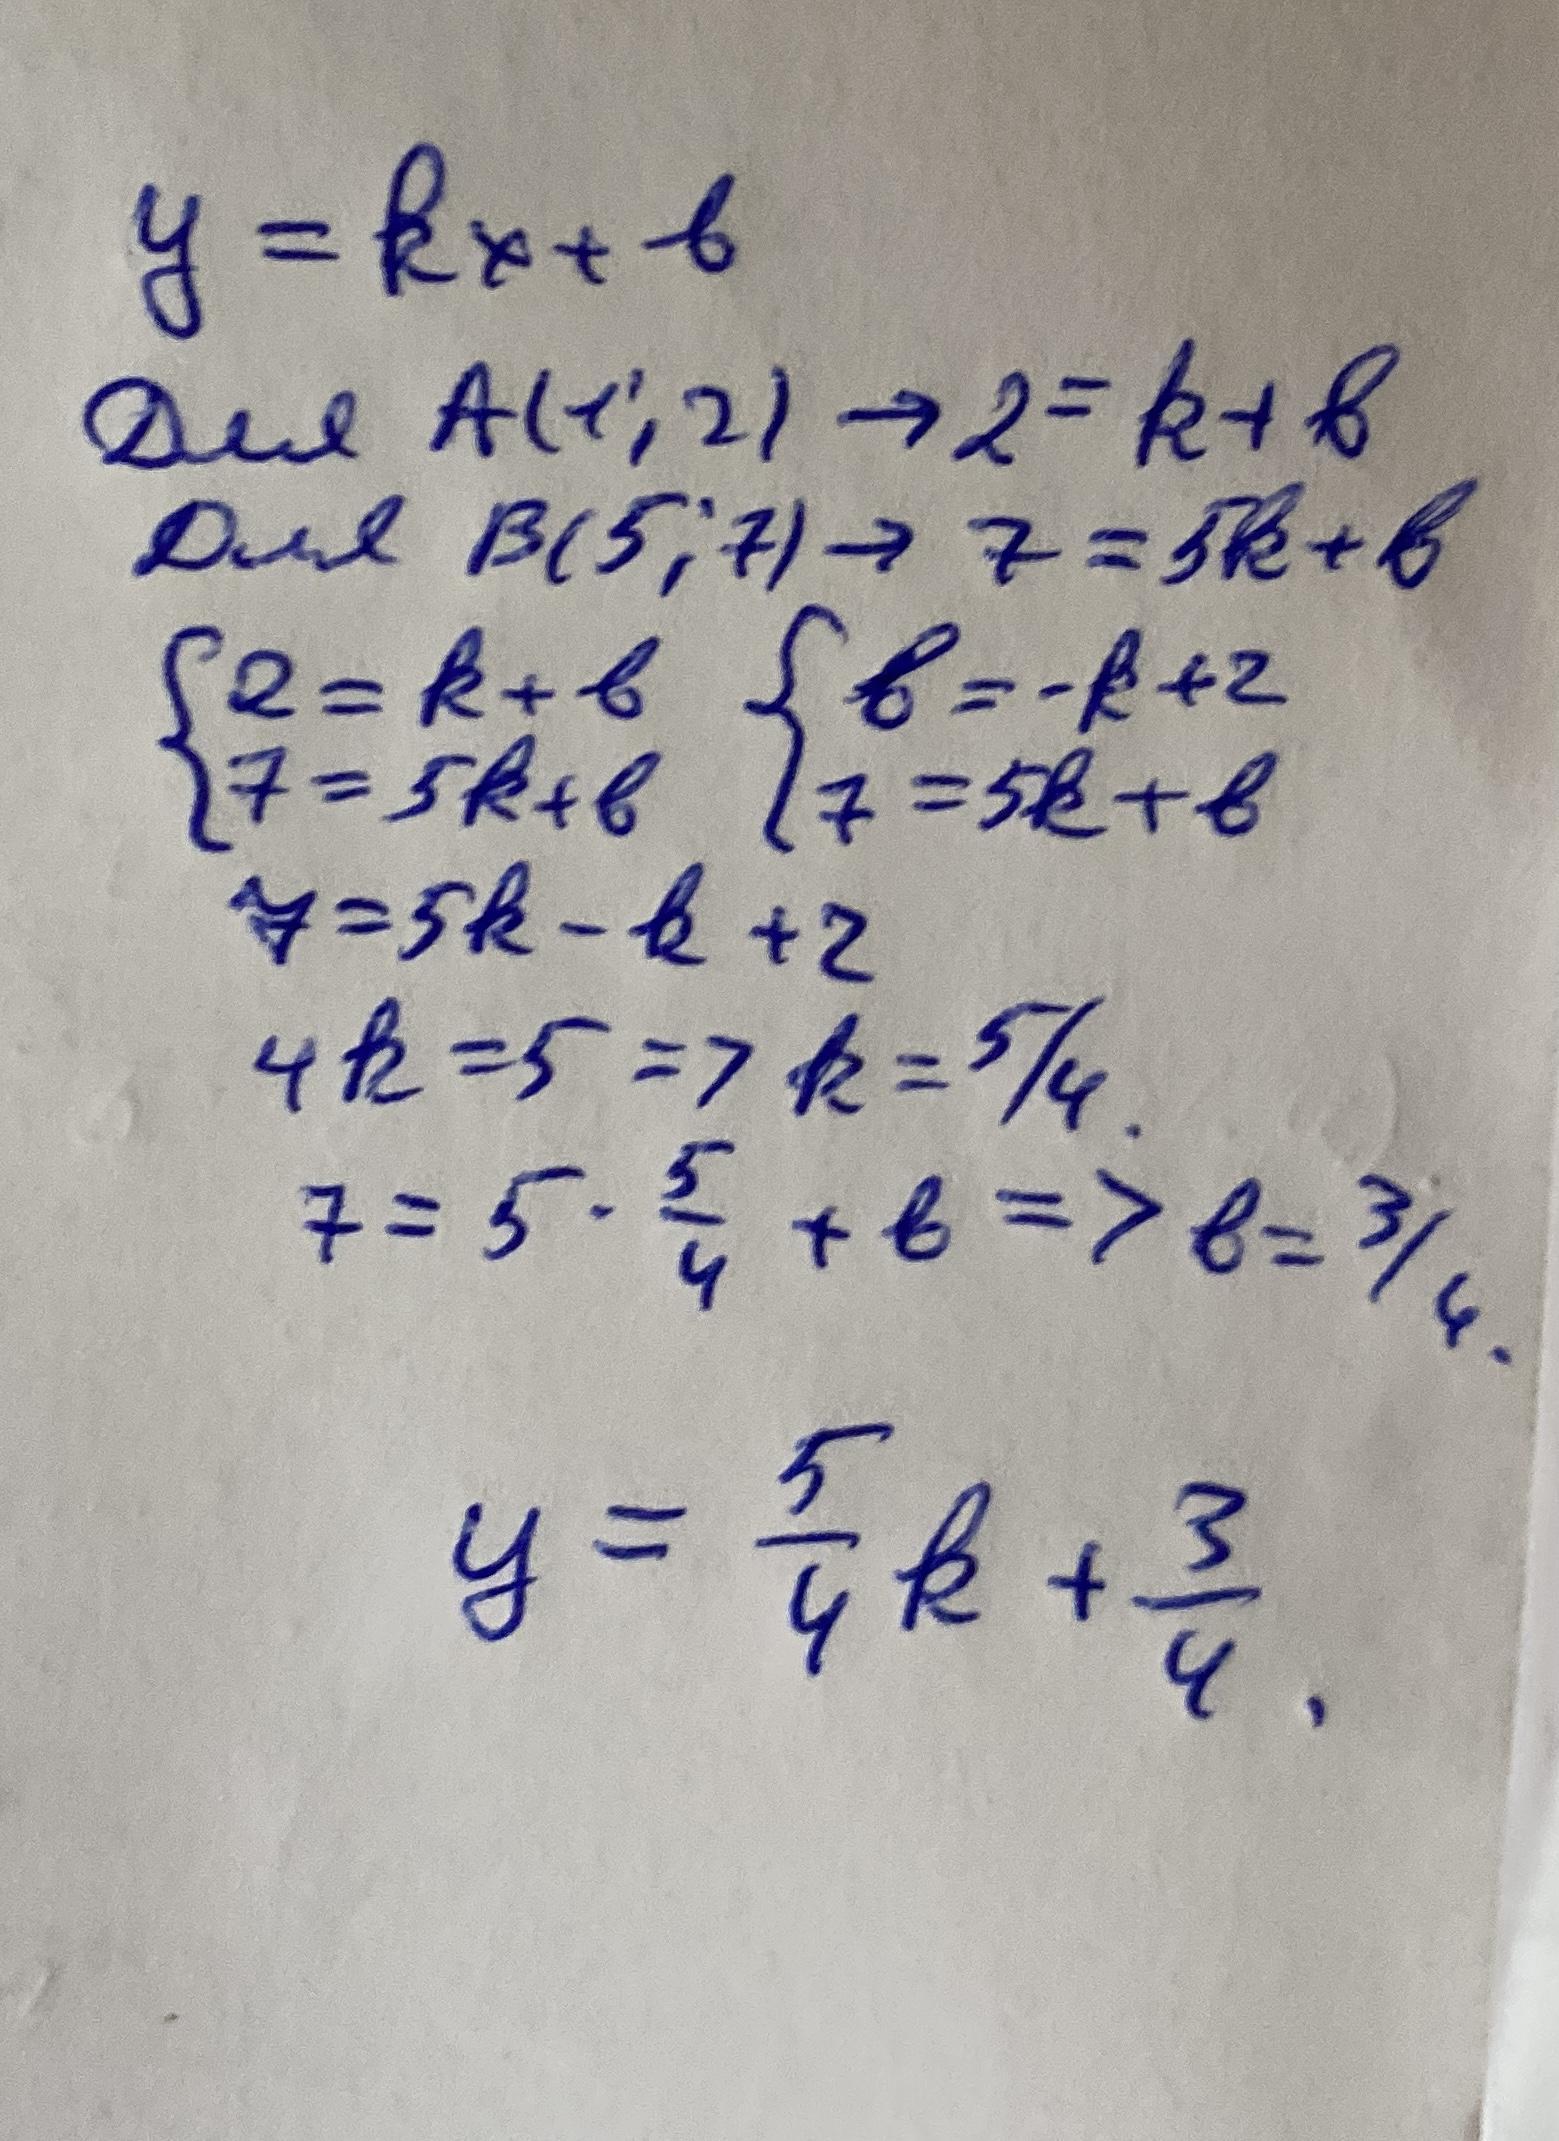 y = kx + b
Для A(1; 2) → 2 = k + b
Для B(5; 7) → 7 = 5k + b
{ 2 = k + b { b = -k + 2
7 = 5k + b 7 = 5k + b
7 = 5k - k + 2
4k = 5 => k = 5/4.
7 = 5 · 5/4 + b => b = 3/4.
y = 5/4 k + 3/4.